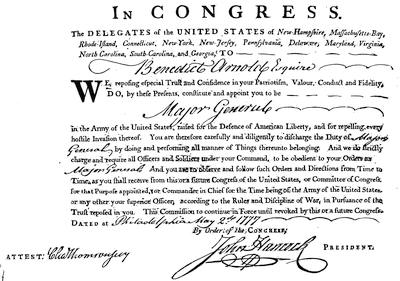 IN CONGRESS.
The DELEGATES of the UNITED STATES of New-Hampshire, Massachusetts-Bay,
Rhode-Island, Connecticut, New-York, New-Jersey, Pennsylvania, Delaware, Maryland, Virginia,
North Carolina, South-Carolina, and Georgia, TO
Benedict Arnold Esquire
WE, reposing especial Trust and Confidence in your Patriotism, Valour, Conduct and Fidelity,
DO, by these Presents, constitute and appoint you to be
Major General
in the Army of the United States, raised for the Defence of American Liberty, and for repelling every
hostile Invasion thereof. You are therefore carefully and diligently to discharge the Duty of Major
General by doing and performing all manner of Things thereunto belonging. And we do strictly
charge and require all Officers and Soldiers under your Command, to be obedient to your Orders as
Major General And you are to observe and follow such Orders and Directions from Time to
Time, as you shall receive from this or a future Congress of the United States, or Committee of Congress
for that Purpose appointed, or Commander in Chief for the Time being of the Army of the United States,
or any other your superior Officer, according to the Rules and Discipline of War, in Pursuance of the
Trust reposed in you. This Commission to continue in Force until revoked by this or a future Congress.
DATED at Philadelphia May 2d 1777
By Order of the CONGRESS,
John Hancock PRESIDENT.
ATTEST. Cha Thomson secy